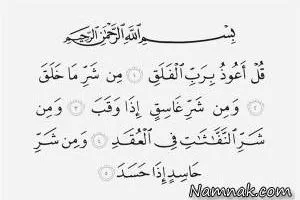 بِسْمِ اللَّهِ الرَّحْمَٰنِ الرَّحِيمِ
قُلْ أَعُوذُ بِرَبِّ الْفَلَقِ ۝١ مِن شَرِّ مَا خَلَقَ
۝٢ وَمِن شَرِّ غَاسِقٍ إِذَا وَقَبَ ۝٣ وَمِن
شَرِّ النَّفَّاثَاتِ فِي الْعُقَدِ ۝٤ وَمِن شَرِّ
حَاسِدٍ إِذَا حَسَدَ ۝٥
Namnak.com